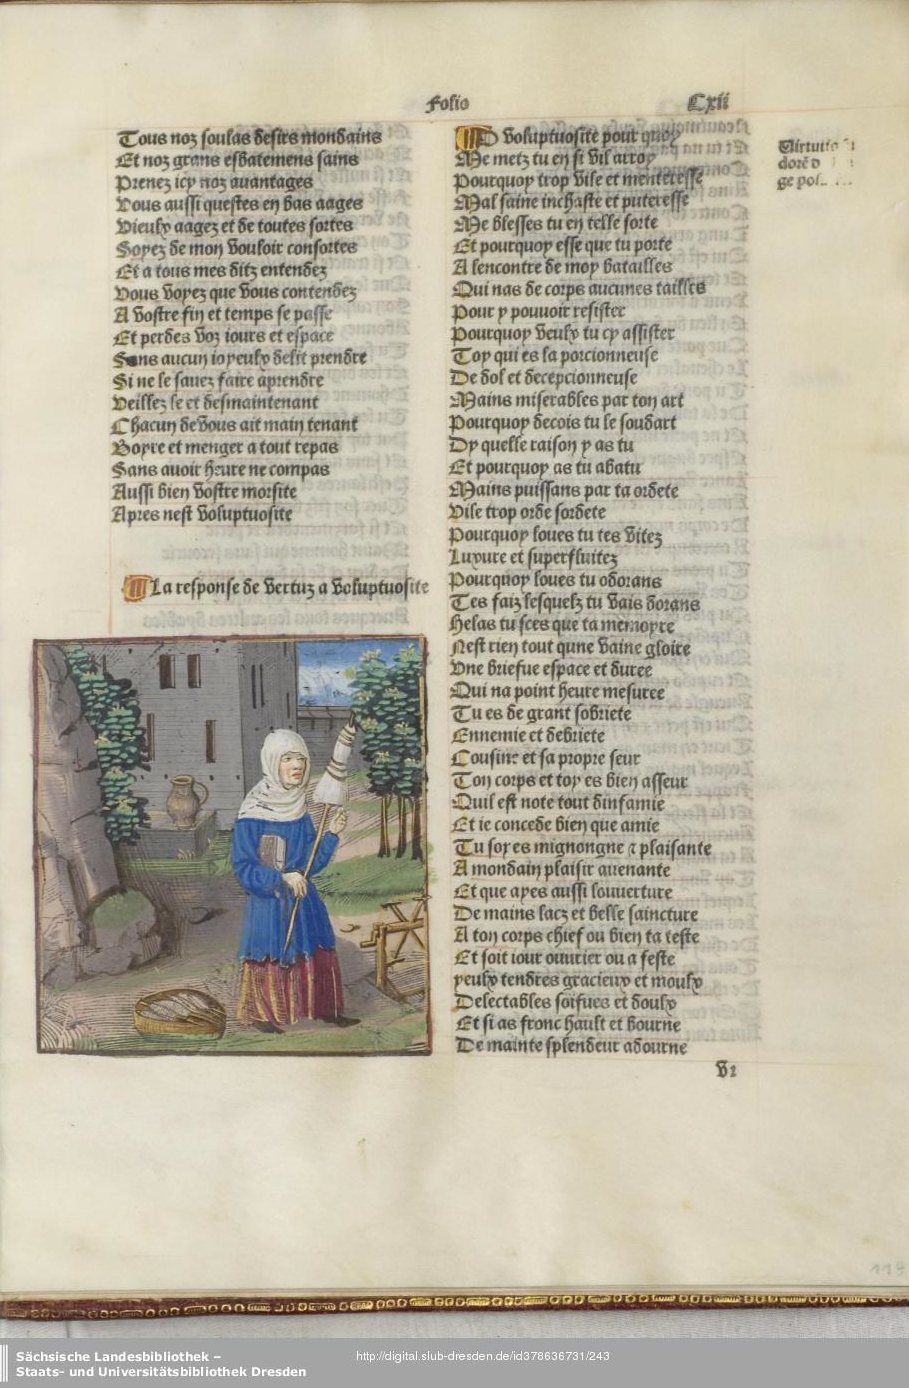 Folio
Cxii
Tous noz soulas desirs mondains
Et noz grans esbatemens sains
Prenez icy noz auantages
Vous aussi questes en bas aages
Vieulx aagez et de toutes sortes
Soyez de mon vouloir consortes
Et a tous mes ditz entendez
Vous voyez que vous contendez
A vostre fin et temps se passe
Et perdes voz iours et espace
Sans aucun ioyeulx delit prendre
Si ne le sauez faire aprendre
Veillez le et desmaintenant
Chacun de vous ait main tenant
Boyre et menger a tout repas
Sans auoir heure ne compas
Aussi bien vostre morsite
Apres nest voluptuosite
La response de vertuz a voluptuosite
O voluptuosite pour quoy
Me metz tu en si vil arroy
Pourquoy trop vile et menteresse
Mal saine inchaste et puteresse
Me blesses tu en telle sorte
Et pourquoy esse que tu porte
A lencontre de moy batailles
Qui nas de corps aucunes tailles
Pour y pouuoir resister
Pourquoy veulx tu cy assister
Toy qui es la porcionneuse
De dol et decepcionneuse
Mains miserables par ton art
Pourquoy decois tu le soudart
Dy quelle raison y as tu
Et pourquoy as tu abatu
Mains puissans par ta ordete
Vile trop orde sordete
Pourquoy loues tu tes vitez
Luxure et superfluitez
Pourquoy loues tu odorans
Tes faiz lesquelz tu vais dorans
Helas tu sces que ta memoyre
Nest rien tout qune vaine gloire
Vne briefue espace et duree
Qui na point heure mesuree
Tu es de grant sobriete
Ennemie et debriete
Cousine et sa propre seur
Ton corps et toy es bien asseur
Quil est note tout dinfamie
Et ie concede bien que amie
Tu soyes mignongne ⁊ plaisante
A mondain plaisir auenante
Et que ayes aussi louuerture
De mains lacz et belle saincture
A ton corps chief ou bien ta teste
Et soit iour ouurier ou a feste
yeulx tendres gracieux et moulx
Delectables soifues et doulx
Et si as fronc hault et bourne
De mainte splendeur adourne
v2
dore
ge
113
Sächsische Landesbibliothek –
Staats- und Universitätsbibliothek Dresden
http://digital.slub-dresden.de/id378636731/243